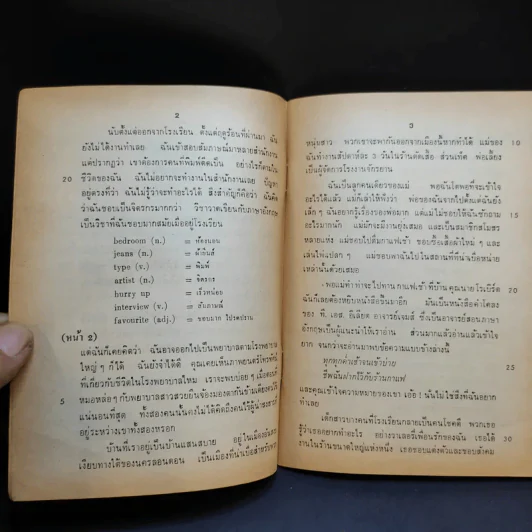 2
นับตั้งแต่ออกจากโรงเรียน ตั้งแต่ฤดูร้อนที่ผ่านมา ฉัน
ยังไม่ได้งานทำเลย ฉันเข้าสอบสัมภาษณ์มาหลายสำนักงาน
แต่ปรากฏว่า เขาต้องการคนที่พิมพ์ดีดเป็น อย่างไรก็ตามใน
20 ชีวิตของฉัน ฉันไม่อยากจะทำงานในสำนักงานเลย ปัญหา
อยู่ตรงที่ว่า ฉันไม่รู้ว่าจะทำอะไรได้ สิ่งสำคัญก็คือว่า ฉันคิด
ว่าฉันชอบเป็นจิตรกรมากกว่า วิชาวาดเรียนกับภาษาอังกฤษ
เป็นวิชาที่ฉันชอบมากสมัยเมื่ออยู่โรงเรียน
bedroom (n.) = ห้องนอน
jeans (n.) = ผ้ายีนส์
type (v.) = พิมพ์
artist (n.) = จิตรกร
hurry up = เร็วหน่อย
interview (v.) = สัมภาษณ์
favourite (adj.) = ชอบมาก โปรดปราน
(หน้า 2)
แต่ฉันก็เคยคิดว่า ฉันอาจออกไปเป็นพยาบาลตามโรงพยาบาล
ใหญ่ๆ ก็ได้ ฉันยังจำได้ คุณเคยเห็นภาพยนตร์โทรทัศน์
ที่เกี่ยวกับชีวิตในโรงพยาบาลไหม เราจะพบบ่อยๆ เมื่อตอนที่
5 หมอหล่อๆ กับพยาบาลสาวสวยยืนจ้องมองตากันข้ามเตียงคนไข้
แน่นอนที่สุด ทั้งสองคนนั้นคงไม่ได้คิดถึงคนไข้ผู้น่าสงสาร
อยู่ระหว่างเขาทั้งสองหรอก
บ้านที่เราอยู่เป็นบ้านแสนสบาย อยู่ในเมืองอันสงบ
เงียบทางใต้ของนครลอนดอน เป็นเมืองที่น่าเบื่อสำหรับพวก
3
หนุ่มสาว พวกเขาจะพากันออกจากเมืองนี้หากทำได้ แม่ของ 10
ฉันทำงานสัปดาห์ละ 3 วันในร้านตัดเสื้อ ส่วนเทศ พ่อเลี้ยง
เป็นผู้จัดการโรงงานจักรยาน
ฉันเป็นลูกคนเดียวของแม่ พ่อฉันโดยพอที่จะเข้าใจ
อะไรได้แล้ว แม่ก็เล่าให้ฟังว่า พ่อของฉันจากไปตั้งแต่ฉันยัง
เล็กๆ ฉันอยากรู้เรื่องของพ่อมาก แต่แม่ไม่ชอบให้ฉันซักถาม 15
อะไรมากนัก แม่มักจะมีงานยุ่งเสมอ และเป็นสมาชิกสโมสร
หลายแห่ง แม่ชอบไปดื่มกาแฟเช้า ชอบซื้อเสื้อผ้าใหม่ๆ และ
เล่นไพ่แปลกๆ แม่ชอบพาฉันไปในสถานที่ที่น่าเบื่อหน่าย
เหล่านั้นด้วยเสมอ
พอแม่ทำท่าจะไปทาน กาแฟเช้าที่บ้านคุณนายโรเบิร์ต 20
ฉันก็เลยต้องหยิบหนังสือขึ้นมาอีก มันเป็นหนังสือคำโคลง
ของ ที. เอส. อีเลียต อาจารย์เจมส์ ซึ่งเป็นอาจารย์สอนภาษา
อังกฤษเป็นผู้แนะนำให้เราอ่าน ส่วนมากแล้วอ่านแล้วเข้าใจ
ยาก จนกว่าจะอ่านมาพบข้อความแบบข้างล่างนี้
ทุกทุกค่ำเช้าจนเข้าบ่าย
ชีพฉันฝากไว้กับร้านกาแฟ 25
และคุณเข้าใจความหมายของเขา เอ๊อ ! นั่นไม่ใช่สิ่งที่ฉันอยาก
ทำเลย
เด็กสาวๆ บางคนที่โรงเรียนกลายเป็นคนโชคดี พวกเธอ
รู้ว่าเธออยากทำอะไร อย่างวาเลอรี่เพื่อนรักของฉัน เธอได้ 30
งานในร้านขนาดใหญ่แห่งหนึ่ง เธอชอบแต่งตัวและชอบสังคม